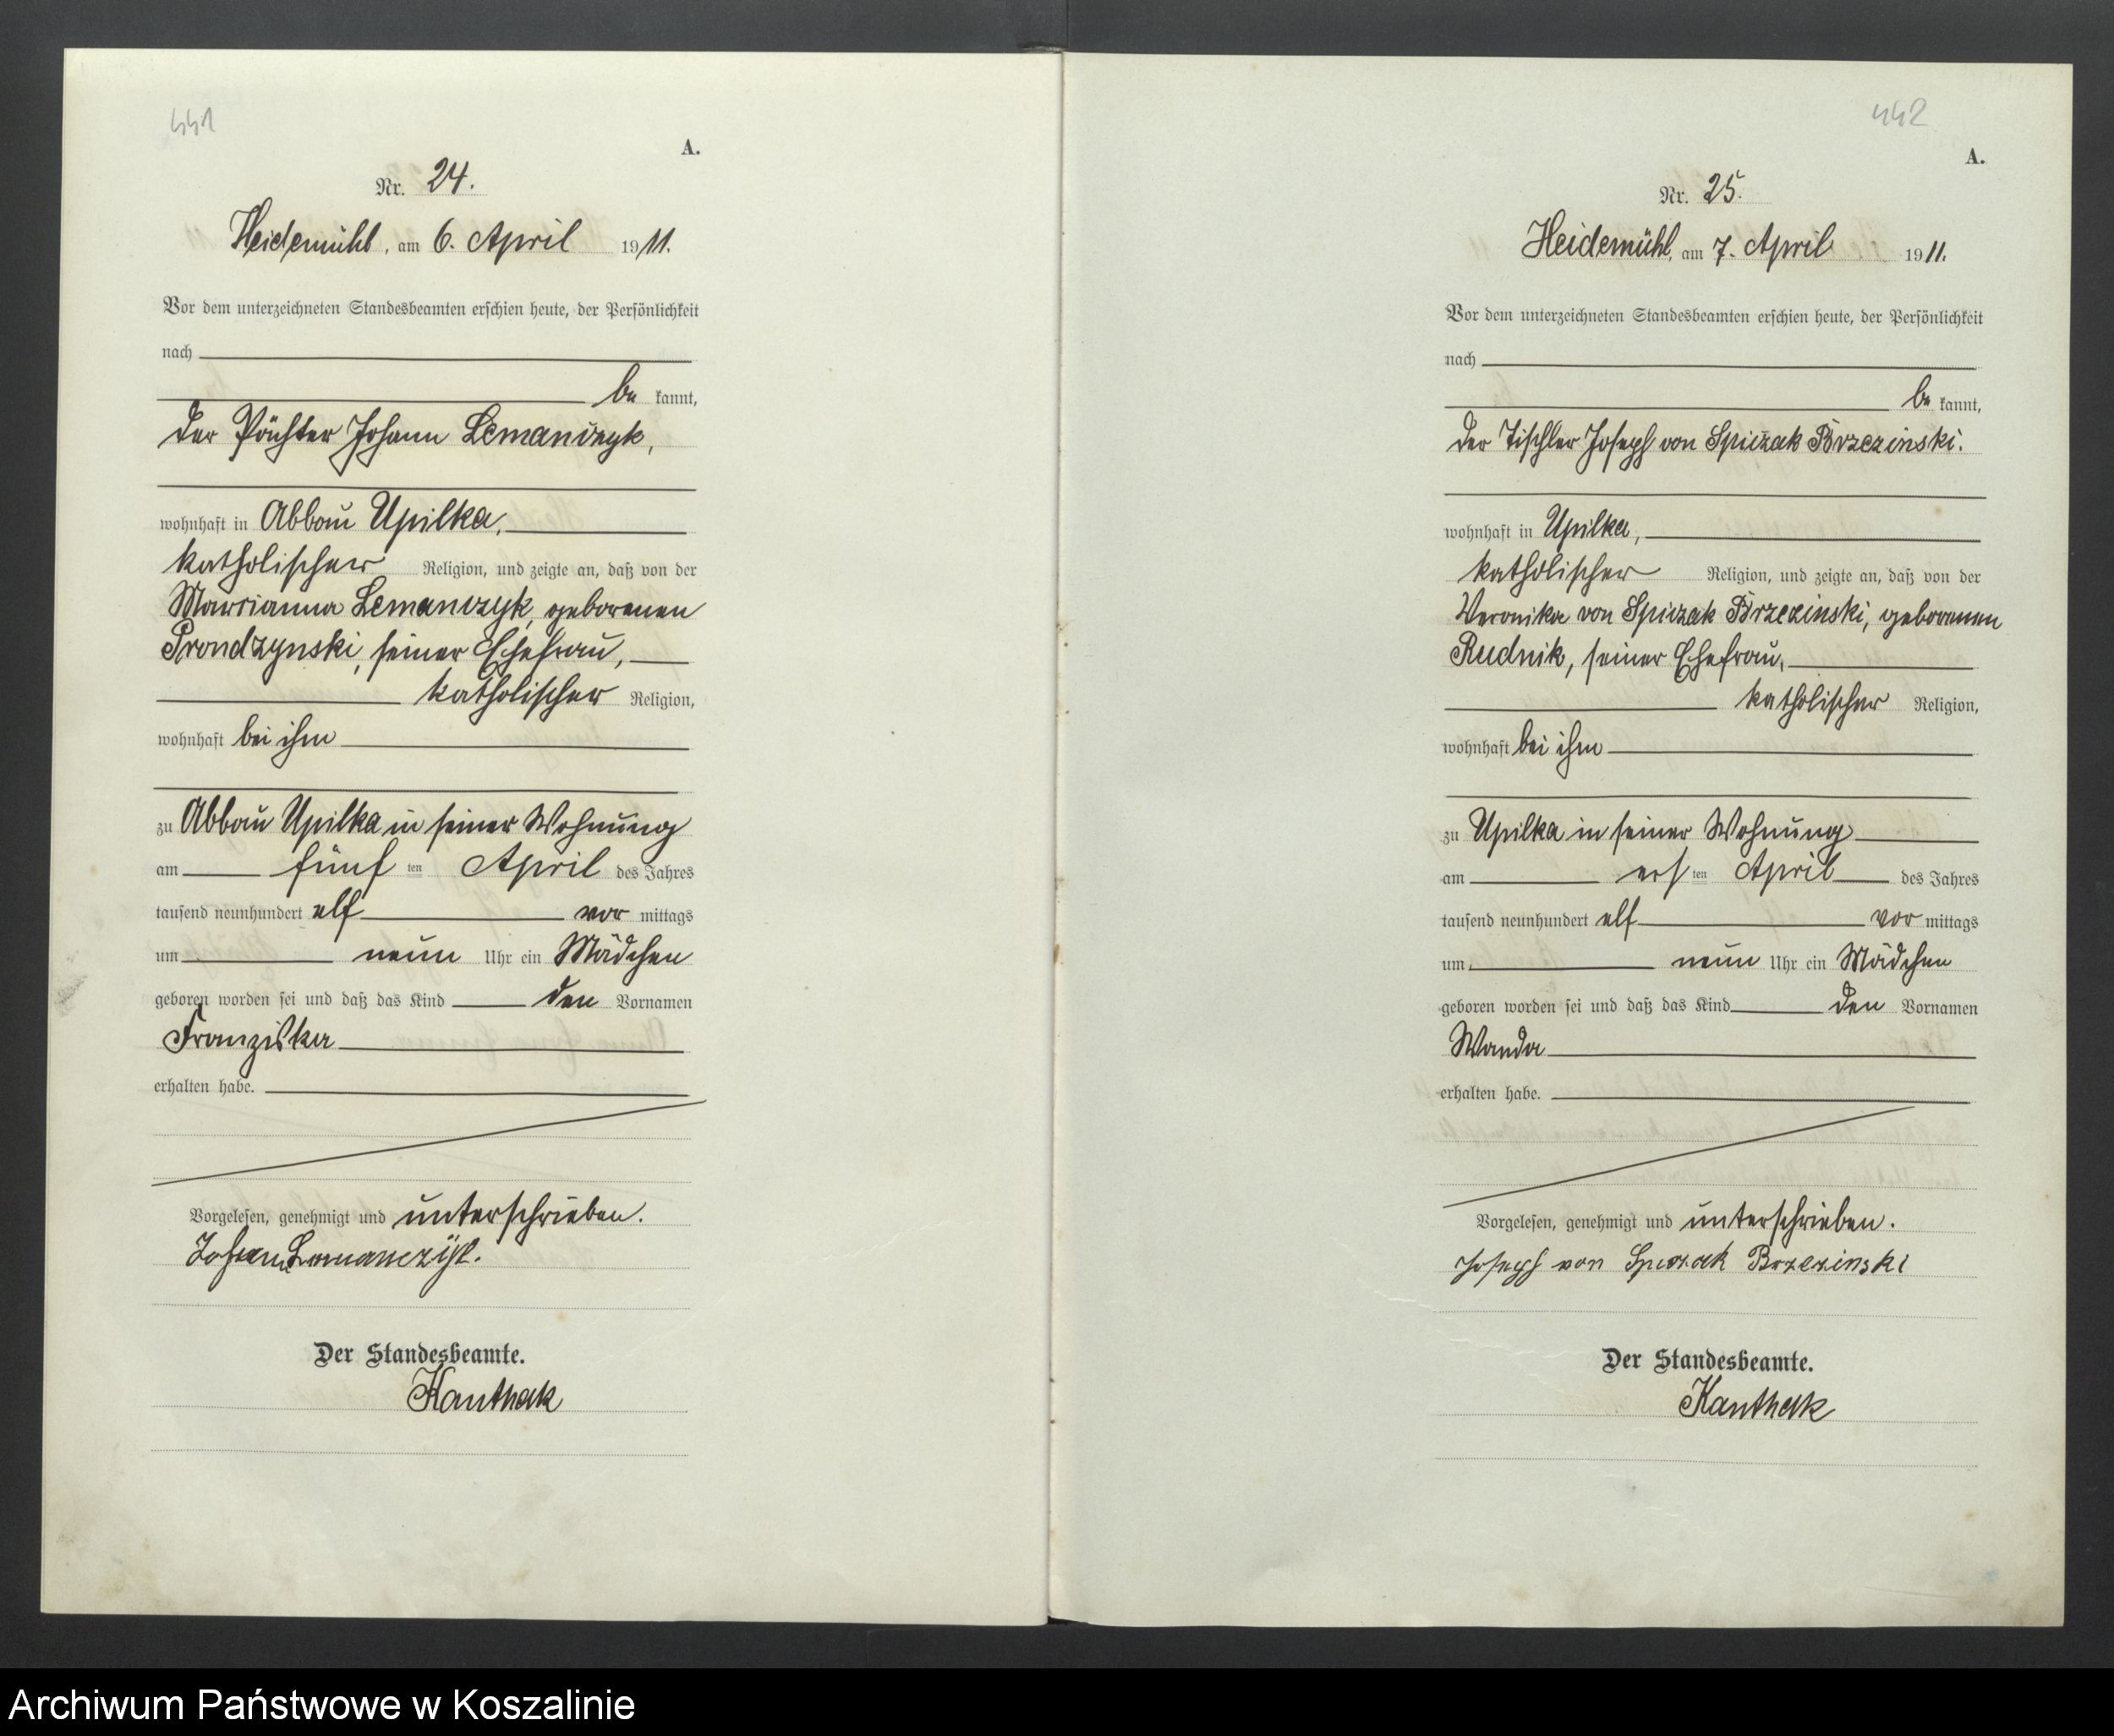 441
A.
Nr. 24.
Heidemühl, am 6. April 1911.
Vor dem unterzeichneten Standesbeamten erschien heute, der Persönlichkeit
nach
be kannt,
der Pächter Johann Lemanczyk,
wohnhaft in Abbau Upilka,
katholischer Religion, und zeigte an, daß von der
Marrianna Lemanczyk, geborenen
Prondzynski, seiner Ehefrau,
katholischer Religion,
wohnhaft bei ihm
zu Abbau Upilka in seiner Wohnung
am fünf ten April des Jahres
tausend neunhundert elf vor mittags
um neun Uhr ein Mädchen
geboren worden sei und daß das Kind den Vornamen
Franziska
erhalten habe.
Vorgelesen, genehmigt und unterschrieben.
Johann Lemanczyk.
Der Standesbeamte.
Kanthak
442
A.
Nr. 25.
Heidemühl, am 7. April 1911.
Vor dem unterzeichneten Standesbeamten erschien heute, der Persönlichkeit
nach
be kannt,
der Tischler Joseph von Spiczak Brzezinski.
wohnhaft in Upilka,
katholischer Religion, und zeigte an, daß von der
Veronika von Spiczak Brzezinski, geborenen
Rudnik, seiner Ehefrau,
katholischer Religion,
wohnhaft bei ihm
zu Upilka in seiner Wohnung
am ers ten April des Jahres
tausend neunhundert elf vor mittags
um neun Uhr ein Mädchen
geboren worden sei und daß das Kind den Vornamen
Wanda
erhalten habe.
Vorgelesen, genehmigt und unterschrieben.
Joseph von Spiczak Brzezinski
Der Standesbeamte.
Kanthak
Archiwum Państwowe w Koszalinie